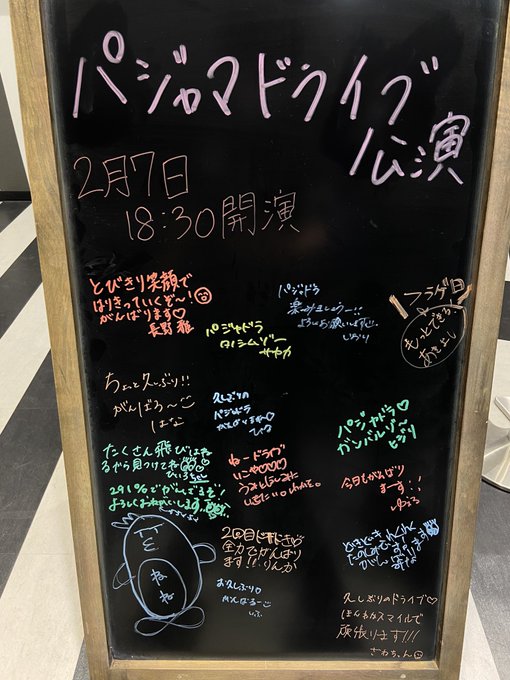 パジャマドライブ
公演
2月7日
18:30開演
とびきり笑顔で
はりきっていくぞ〜!
がんばります♡
長野雅
パジャドラ
タノシムゾー
サヤカ
パジャドラ
楽しみましょうー!!
よろしくお願いします
フラゲ日
もっとできる
ちょっと久しぶり!!
がんばろ〜
はな
久しぶりの
パジャドラ
がんばりますっ♡
パジャドラ♡
ガンバルゾ〜
ヒシリ
たくさん飛びはね
るから見つけてね
291%でがんばるぞ
よろしくおねがいします
ねードライブ
いこや♡♡♡
今日もがんばり
まーす!!
ゆうろ
ねね
2回目ドキドキだけど
全力でがんばり
ます!!りんか
お久しぶり♡
がんばるー
どきどき わくわく
久しぶりのドライブ♡
ほんわかスマイルで
頑張ります!!!
さわちゃん